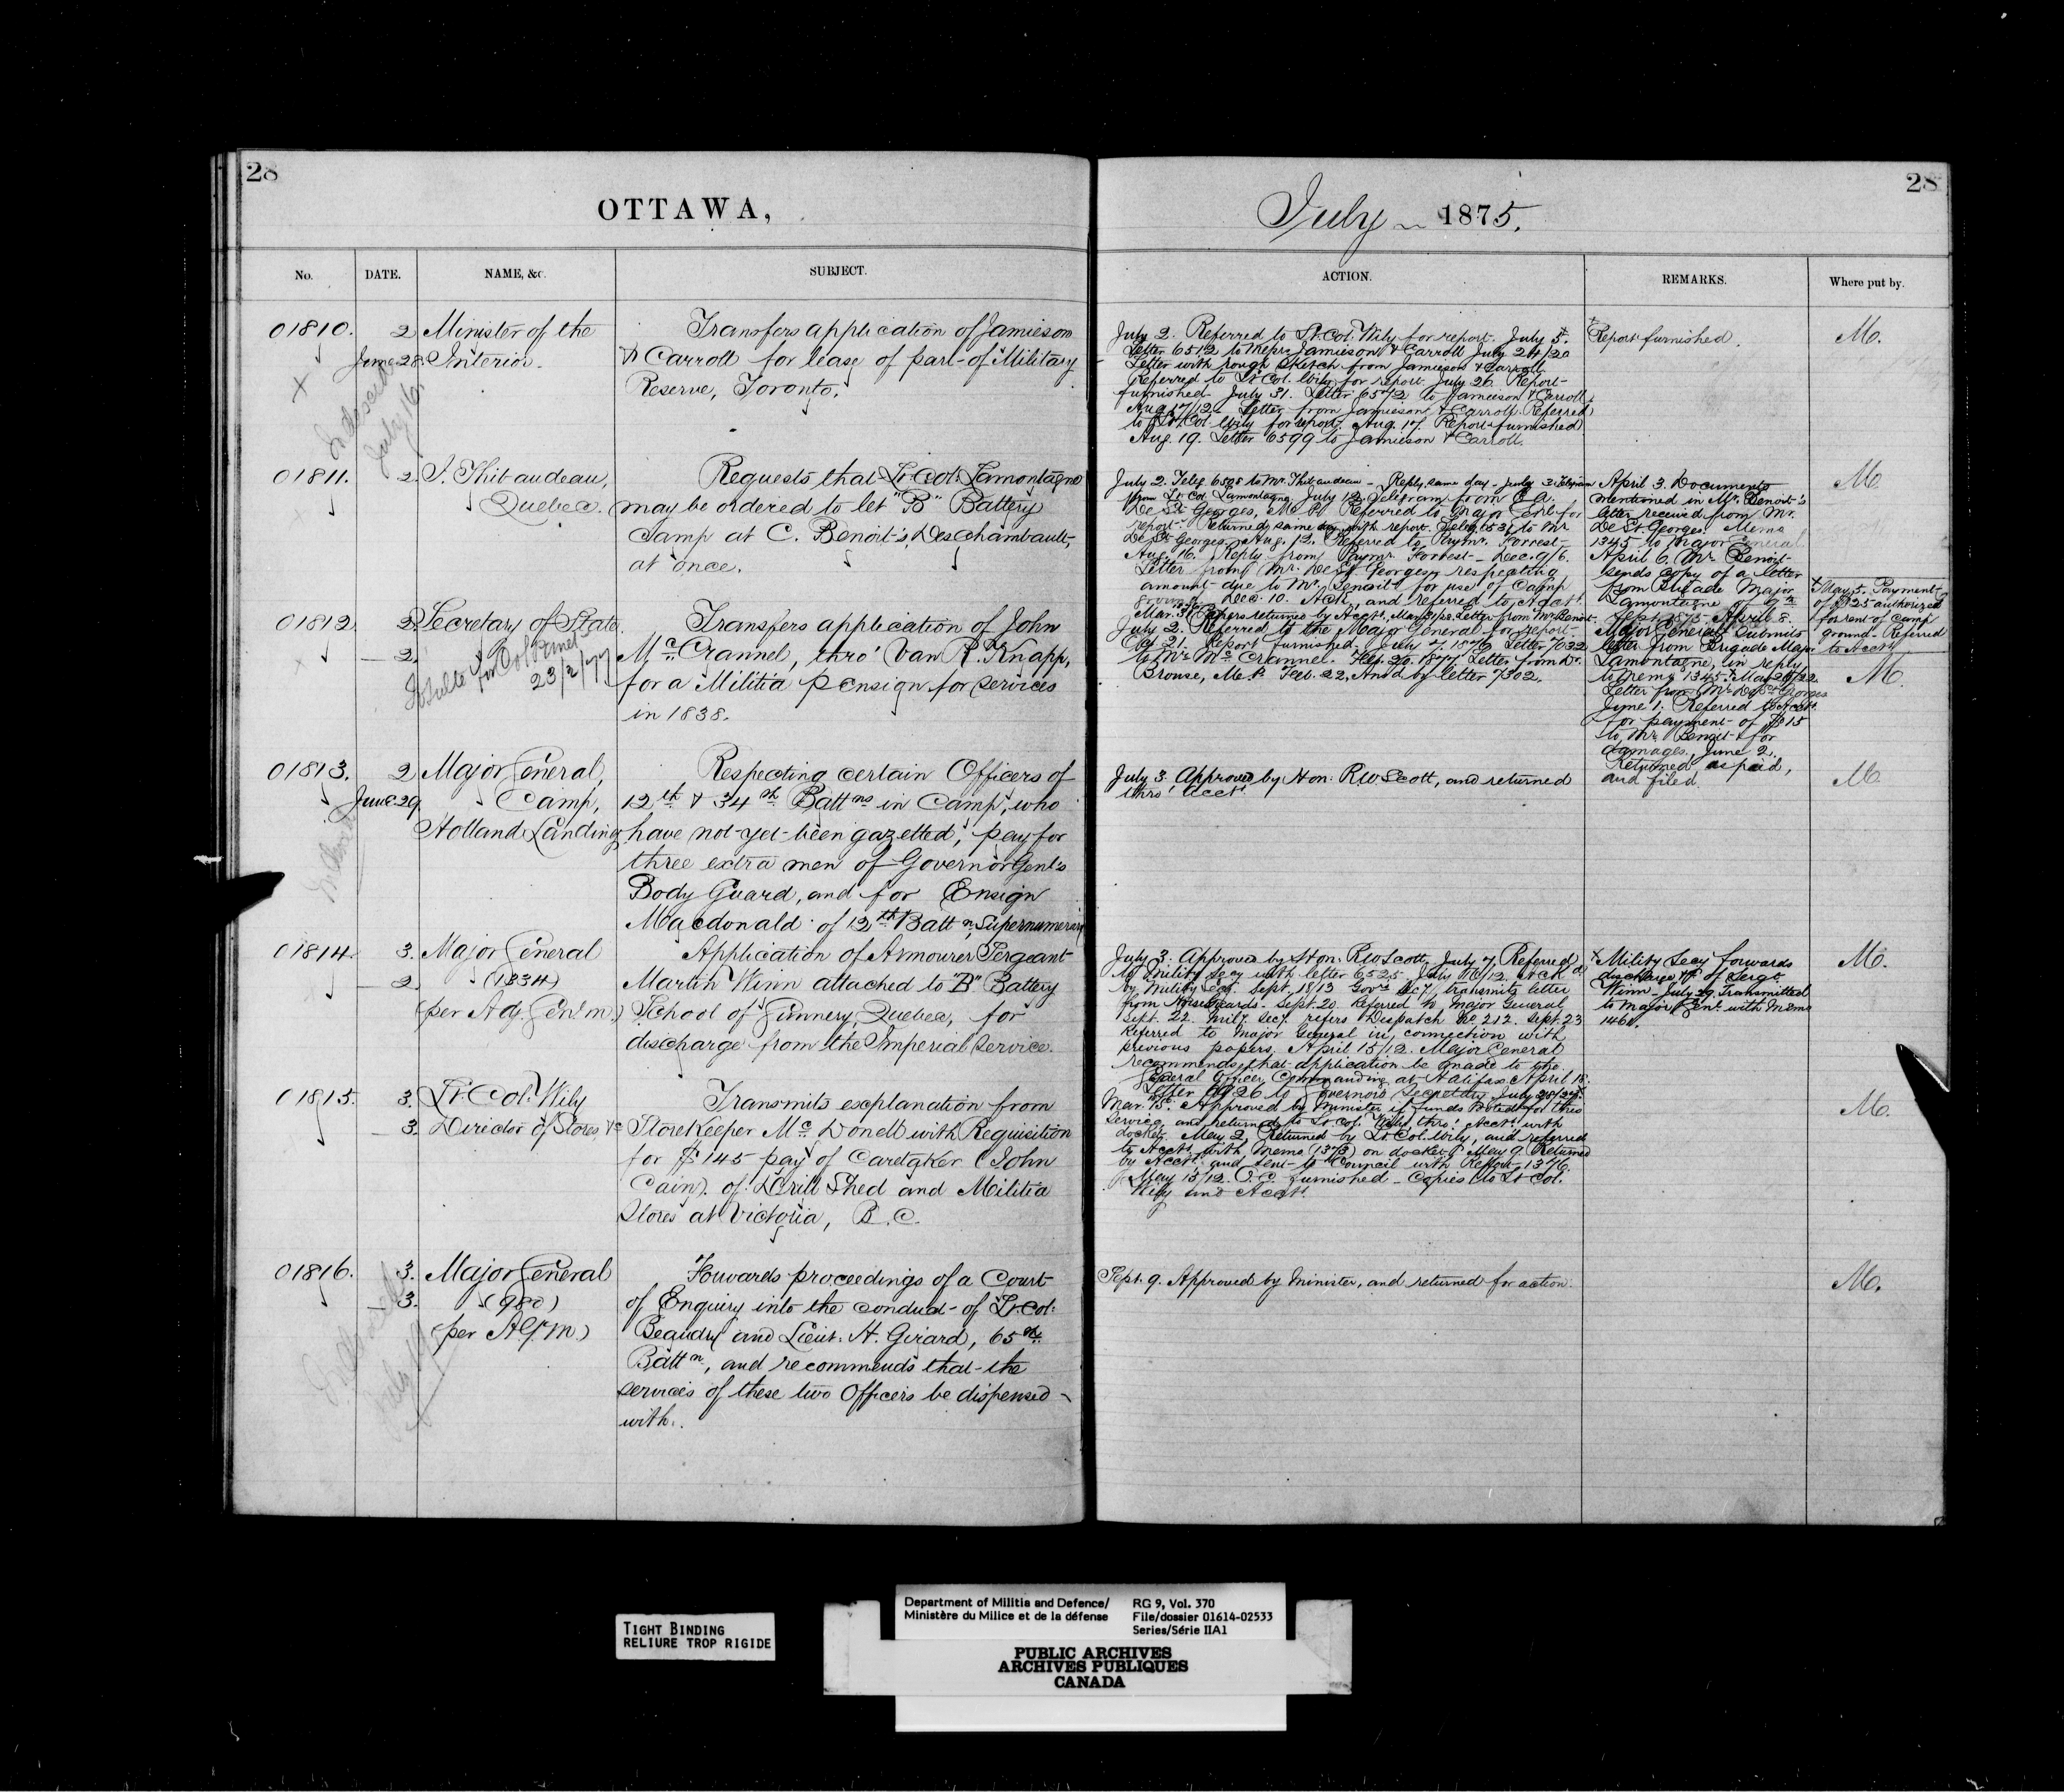 28
OTTAWA,
No.
DATE.
NAME, &c.
SUBJECT.
01810.
2
June 28.
Minister of the
Interior.
Transfers application of Jamieson
& Carroll for lease of part of Military
Reserve, Toronto.
July 16
01811.
2.
Thibaudeau,
Quebec.
Requests that Lt. Col. Lamontagne
may be ordered to let "B" Battery
Camp at C. Benoit's, Deschambault,
at once.
01812
2.
2.
Secretary of State.
23/2/77
Transfers application of John
Mc. Crannel, thro' Van R. Knapp,
for a Militia pension for services
in 1838.
01813.
2
June 29
Major General,
Camp,
Holland Landing
Respecting certain Officers of
12th & 34th Battns in Camp, who
have not yet been gazetted, pay for
three extra men of Governor Genl's
Body Guard, and for Ensign
Macdonald of 12th Battn, Supernumerary
01814
3.
2
Major General
(1334)
(per A. Genl m.)
Application of Armourer Sergeant
Martin Winn attached to "B" Battery
School of Gunnery, Quebec, for
discharge from the Imperial Service.
01815.
3.
3.
Lt. Col. Wily
Director of Stores, &c
Transmits explanation from
Storekeeper Mc Donell with Requisition
for $145 pay of Caretaker (John
Cain) of Drill Shed and Militia
Stores at Victoria, B.C.
01816.
3.
3.
Major General
(980)
(per A.G.M.)
Forwards proceedings of a Court
of Enquiry into the conduct of Lt. Col:
Beaudry and Lieut. H. Girard, 65th
Battn, and recommends that the
services of these two Officers be dispensed
with.
28
July 1875.
ACTION.
REMARKS.
Where put by.
July 2. Referred to Lt. Col. Wily for report. July 5.
Letter 6512 to Jamieson & Carroll July 24/20
Letter with rough sketch from Jamieson & Carroll
Referred to Lt Col. Wily for report. July 26. Report
furnished July 31. Letter 6572 to Jamieson & Carroll
Aug 17/12. Letter from Jamieson & Carroll. Referred
to Lt. Col. Wily for report. Aug. 17. Report furnished
Aug. 19. Letter 6599 to Jamieson & Carroll.
Report furnished.
M.
July 2. Teleg 6508 to Mr. Thibaudeau - Reply same day - July 3 Telegram
from Lt Col Lamontagne, July 12 Telegram from
De St Georges, M.P. Referred to Major Genl for
report. Returned same day with report. to Mr
De St Georges. Aug. 12. Referred to Paymr. Forrest
Aug. 16. Reply from Paymr. Forrest - Dec. 9/6.
Letter from Mr. De St Georges respecting
amount due to Mr. Benoit for use of Camp
ground. Dec. 10. Ack. and referred to Acct.
Mar. 31 Papers returned by Acct. Letter from Mr Benoit
April 3. Documents
mentioned in Mr. Benoit's
letter received from Mr.
De St Georges. Memo
1345 to Major General
April 6. Mr. Benoit
sends copy of a letter
from Brigade Major
Lamontagne of 9th
Sept. 1875. April 8.
Major General submits
letter from Brigade Major
Lamontagne, in reply
to memo 1345. May 26/22
Letter from Mr. De St Georges
June 1. Referred to Acct.
for payment of $15
to Mr. Benoit for
damages, June 2.
Returned as paid,
and filed.
M.
May 5. Payment
of $25 authorized
for rent of Camp
ground. Referred
to Acct
July 2. Referred to the Major General for report.
July 21. Report furnished. July 7. 1876 Letter 7032
to Mr. Mc Crannel. Feb. 20. 1877. Letter from Dr.
Brouse, M.P. Feb. 22. Ansd by letter 7302.
M.
July 3. Approved by Hon: RW Scott, and returned
thro' Acct.
M.
July 3. Approved by Hon: RW Scott, July 7. Referred
to Mility Secy with letter 6525. July 16/12. Ackd
by Mility Secy. Sept. 18/13 Govrs Secy transmits letter
from Horse Guards. Sept. 20 Referred to Major General
Sept. 22. Mily Secy. refers Despatch No. 212. Sept. 23
Referred to Major General in connection with
previous papers. April 15/12. Major General
recommends that application be made to the
General Officer Commanding at Halifax April 15.
to Governor's Secretary
Mility Secy forwards
discharge of Sergt
Winn - July 29. Transmitted
to Major Genl with Memo
1461.
M.
Mar. 15. Approved by Minister if funds voted for this
service, and returned to Lt Col. Wily, thro' Acct. with
docket. May 2, Returned by Lt Col. Wily, and referred
to Acct. with Memo (1373) on docket. May 9. Returned
by Acct. and sent to Council with Report 1376.
May 15/12. O.C. furnished - Copies to Lt Col.
Wily and Acct.
M.
Sept. 9. Approved by Minister, and returned for action.
M.
TIGHT BINDING
RELIURE TROP RIGIDE
Department of Militia and Defence/
Ministère du Milice et de la défense
RG 9, Vol. 370
File/dossier 01614-02533
Series/Série IIA1
PUBLIC ARCHIVES
ARCHIVES PUBLIQUES
CANADA